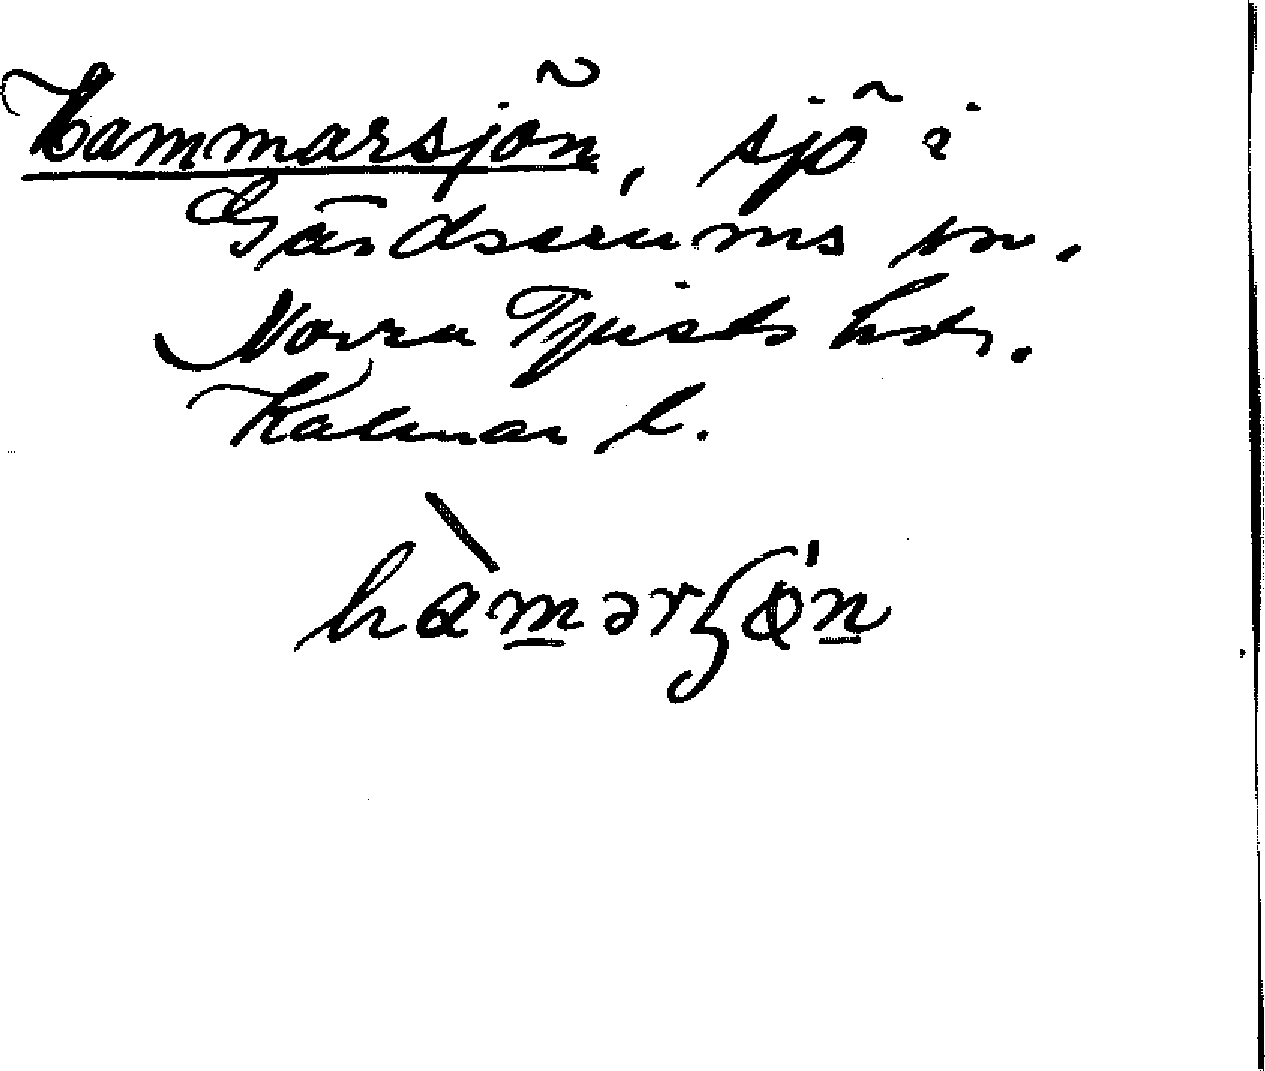 Hammarsjön, sjö i
Gärdserums sn.
Norra Tjusts hdr.
Kalmar l.
hàmərʃø̀n